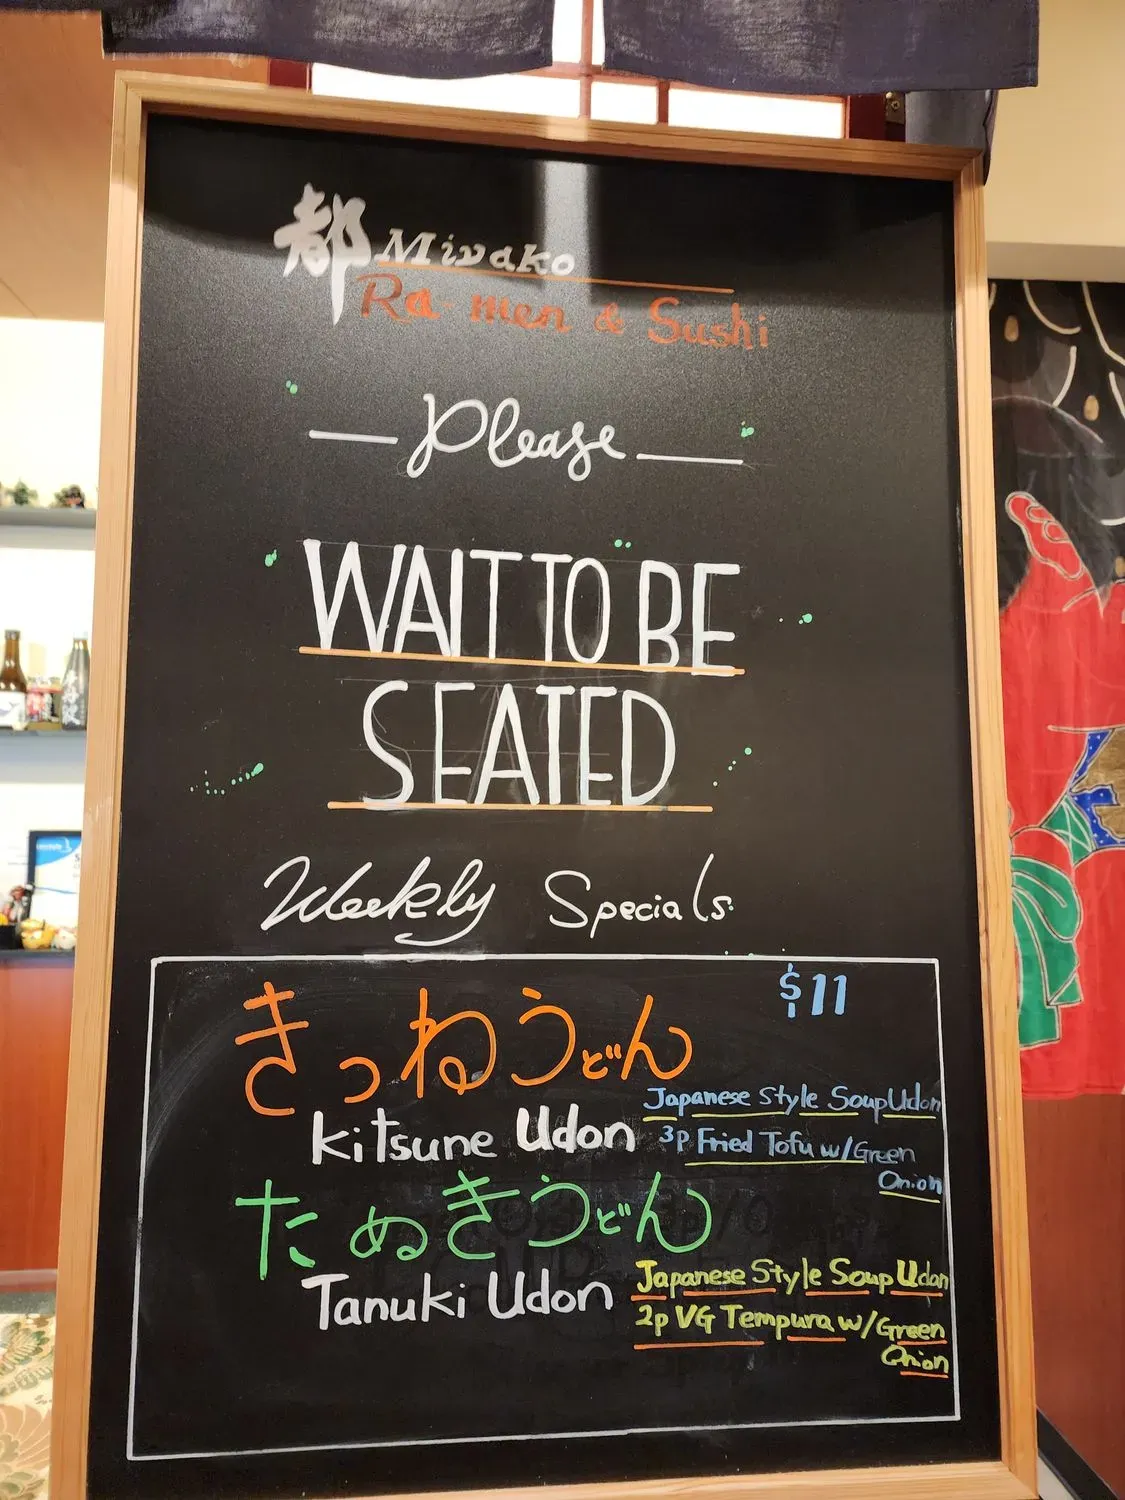 都 Miyako
Ra-men & Sushi
Please
WAIT TO BE
SEATED
Weekly Specials.
$11
きつねうどん
Kitsune Udon
Japanese Style Soup Udon
3p Fried Tofu w/Green
Onion
たぬきうどん
Tanuki Udon
Japanese Style Soup Udon
2p VG Tempura w/Green
Onion